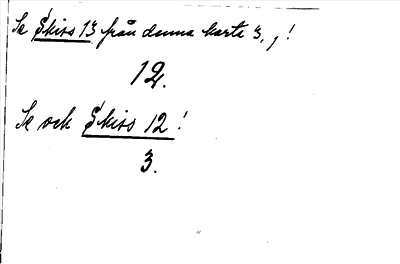 Se Skiss 13 från denna karta 3, !
12.
Se och Skiss 12 !
3.